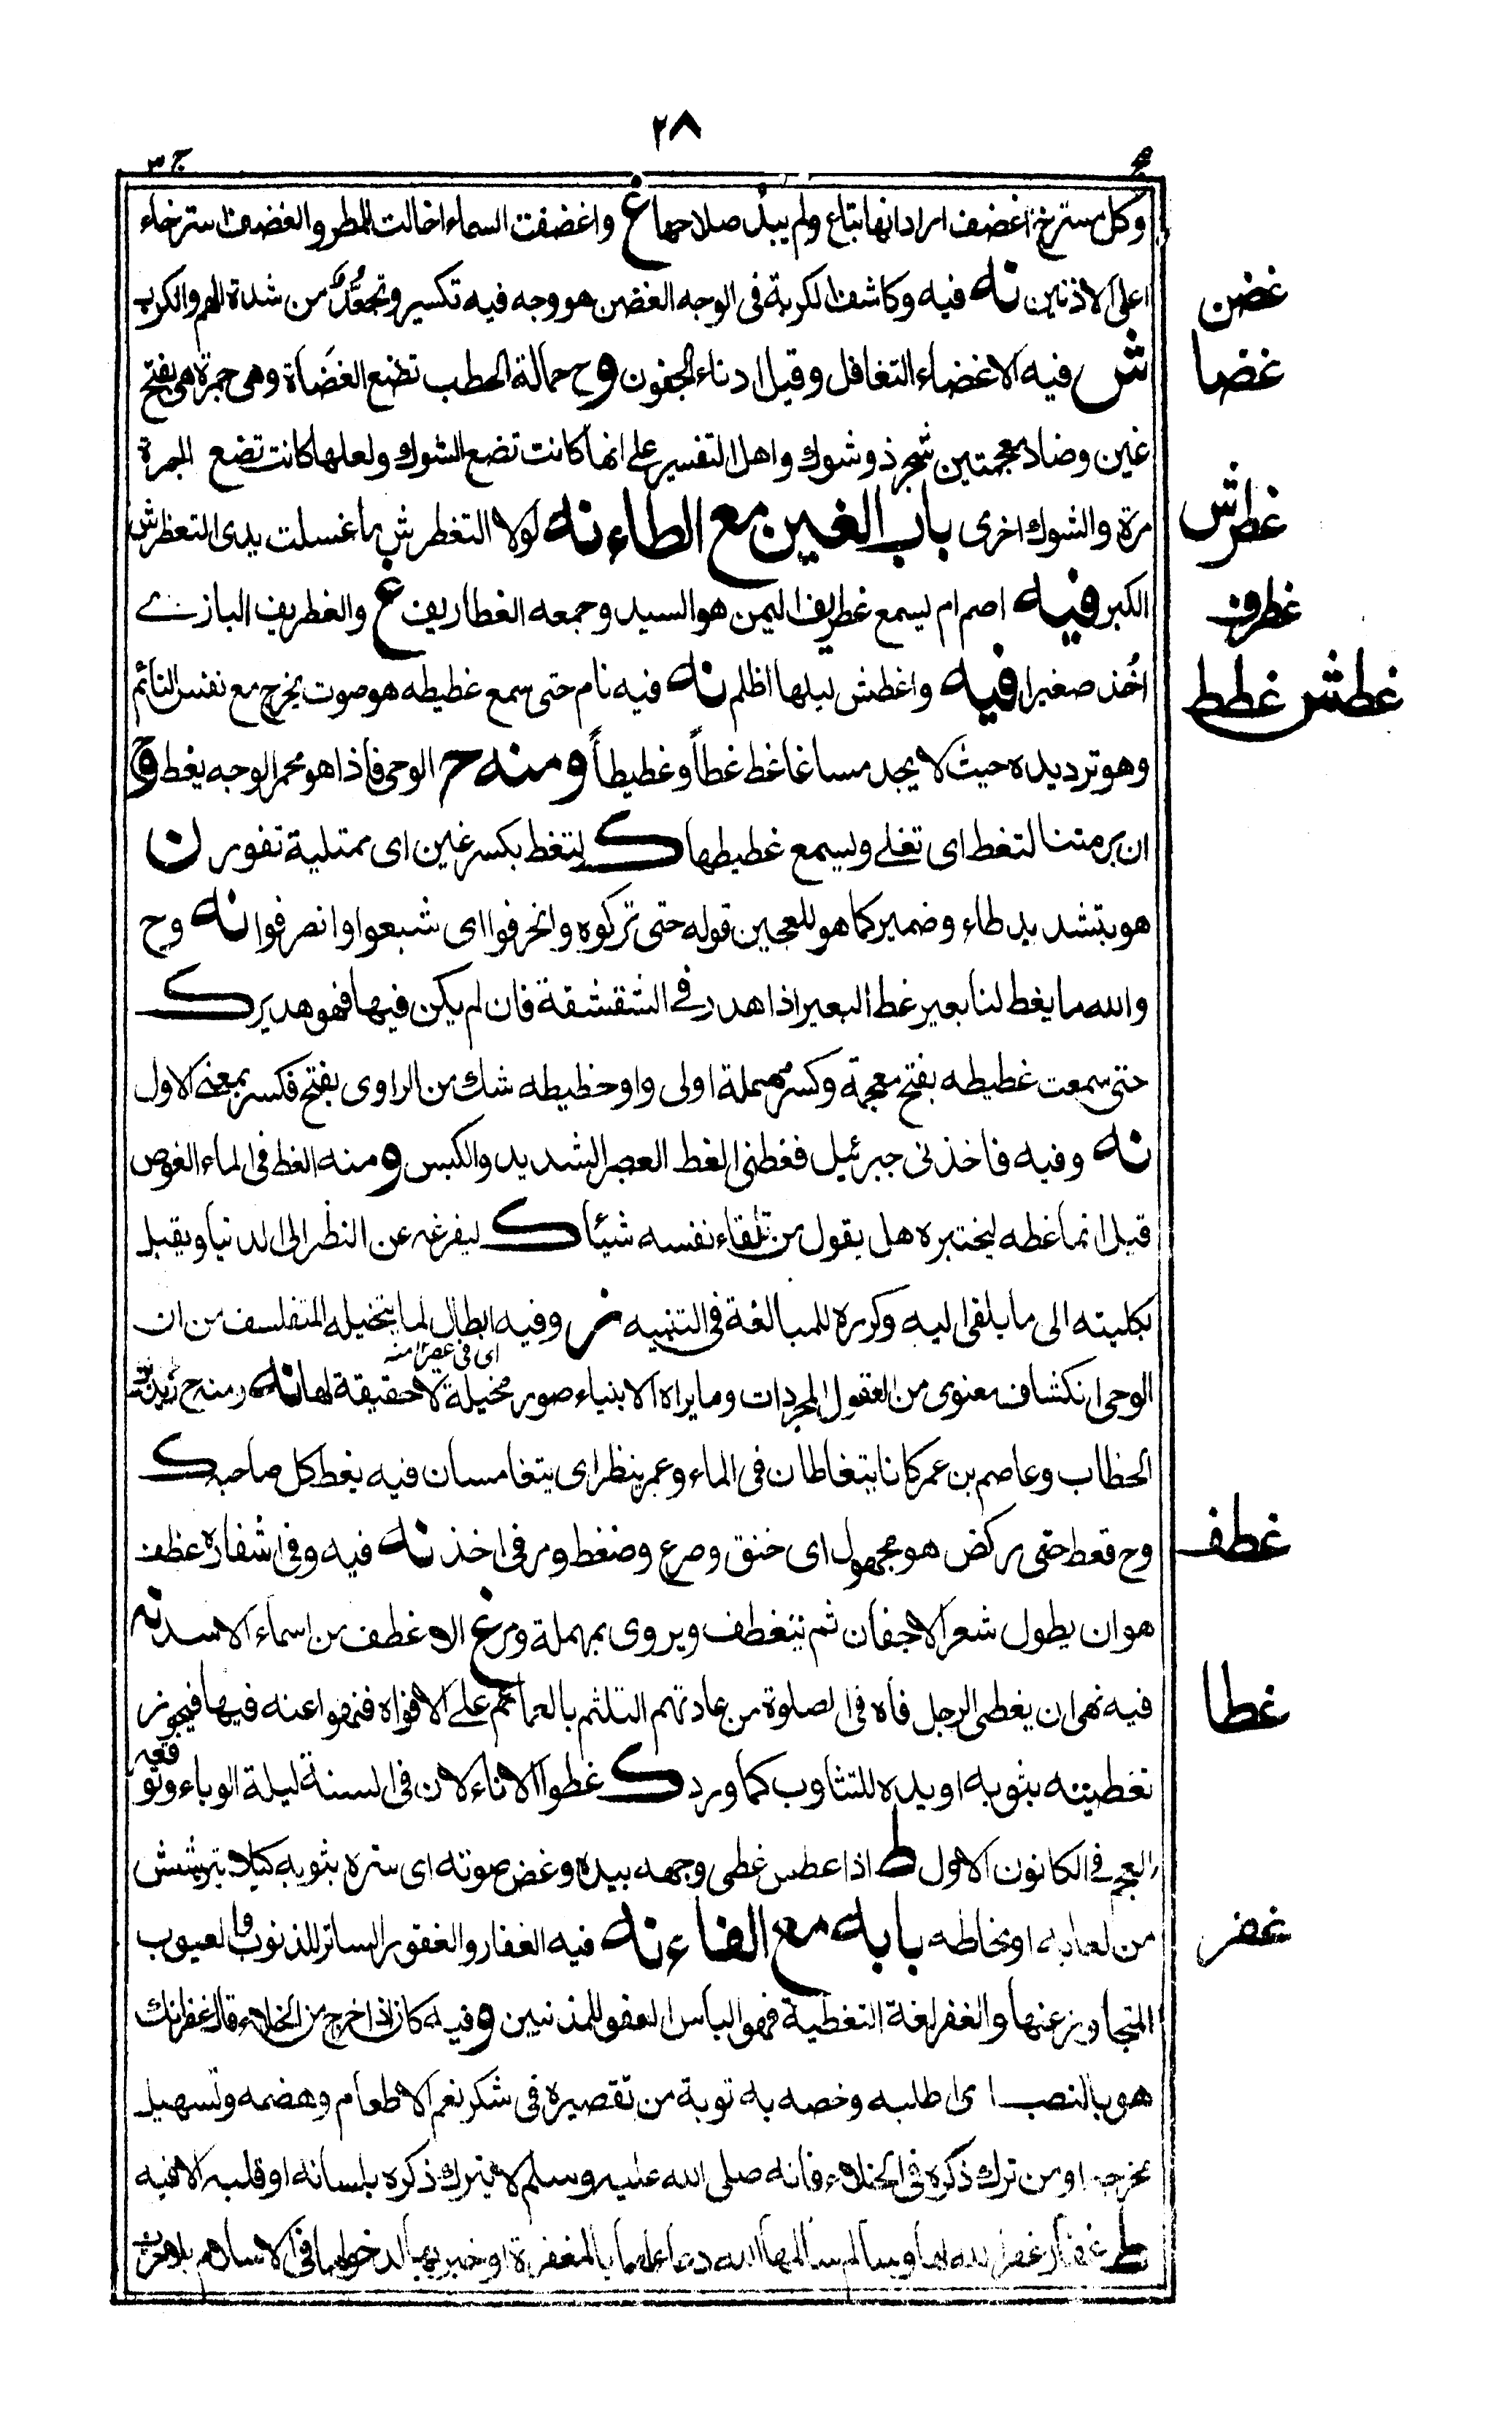 ٢٨
ج ٣
وكل مسترخ اغضف اراد انها تباع ولم يبد صلاحها غ واغضفت السماء اخالت للمطر والغضف استرخاء
اعلى الاذنين نه فيه وكاشف الكربة فى الوجه الغضن هو وجه فيه تكسير وتجعد من شدة الهم والكرب
غضن
ش فيه الاغضاء التغافل وقيل ادناء الجفون وح حمالة الحطب تضع الغضاة وهى جمرة هى بفتح
غضا
غين وضاد معجمتين شجر ذو شوك واهل التفسير على انها كانت تضع الشوك ولعلها كانت تضع الجمرة
مرة والشوك اخرى باب الغين مع الطاء نه لولا التغطرش ما غسلت يدى التغطرش
غطرش
الكبر فيه اصم ام يسمع غطريف اليمن هو السيد وجمعه الغطاريف غ والغطريف البازے
غطرف
اخذ صغيرا فيه واغطش ليلها اظلم نه فيه نام حتى سمع غطيطه هو صوت يخرج مع نفس النائم
غطش غطط
وهو ترديده حيث لا يجد مساغا غط غطاً وغطيطاً ومنه ح الوحى فاذا هو محمر الوجه يغط وح
ان برمتنا لتغط اى تغلے ويسمع غطيطها ك لتغط بكسر غين اى ممتلية تفور ن
هو بتشديد طاء وضمير كما هو للعجين قوله حتى تركوه وانحرفوا اى شبعوا وانصرفوا نه وح
والله ما يغط لنا بعير غط البعير اذا هدر فے الشقشقة فان لم يكن فيها فهو هدير ك
حتى سمعت غطيطه بفتح معجمة وكسر مهملة اولى و او خطيطه شك من الراوى بفتح فكسر بمعنے الاول
نه وفيه فاخذنى جبرئيل فغطنى الغط العصر الشديد والكبس ومنه الغط فى الماء الغوص
قيل انما غطه ليختبره هل يقول من تلقاء نفسه شيئا ك ليفرغه عن النظر الى الدنيا ويقبل
بكليته الى ما يلقى اليه وكرره للمبالغة فى التنبيه ز وفيه ابطال لما يتخيله المتفلسف من ان
اى فى عصرا منه
الوحى انكشاف معنوى من العقول المجردات وما يراه الانبياء صور مخيلة لا حقيقة لها نه ومنه ح زيد بن
الخطاب وعاصم بن عمر كانا يتغاطان فى الماء وعمر ينظر اى يتغامسان فيه يغط كل صاحبه ك
وح فغط حتى ركض هو مجهول اى خنق وصرع وضغط ومر فى اخذ نه فيه وفى اشفاره غطف
غطف
هو ان يطول شعر الاجفان ثم يتغطف ويروى بمهملة ومر غ الاغطف من اسماء الاسد نه
فيه نهى ان يغطى الرجل فاه فى الصلوة من عادتهم التلثم بالعمائم على الافواه فنهوا عنه فيها فيجوز
غطا
تغطيته بثوبه او يده للتثاوب كما ورد ك غطوا الاناء لان فى السنة ليلة الوباء وتوقعه
العجم فے الكانون الاول ط اذا عطس غطى وجهه بيده وغض صوته اى ستره بثوبه كيلا يترشش
من لعابه او مخاطه بابه مع الفاء نه فيه الغفار والغفور الساتر للذنوب والعيوب
غفر
المتجاوز عنها والغفر لغة التغطية فهو الباس العفو للمذنبين وفيه كان اذا خرج من الخلاء قال غفرانك
هو بالنصب اى اطلبه وخصه به توبة من تقصيره فى شكر نعم الاطعام وهضمه وتسهيل
مخرجه او من ترك ذكره فى الخلاء فانه صلى الله عليه وسلم لا يترك ذكره بلسانه او قلبه الا فيه
ط غفار غفر الله لها وسالم سالمها الله دعاء لهما بالمغفرة او خبر بها لدخولهما فى الاسلام بلا حرب